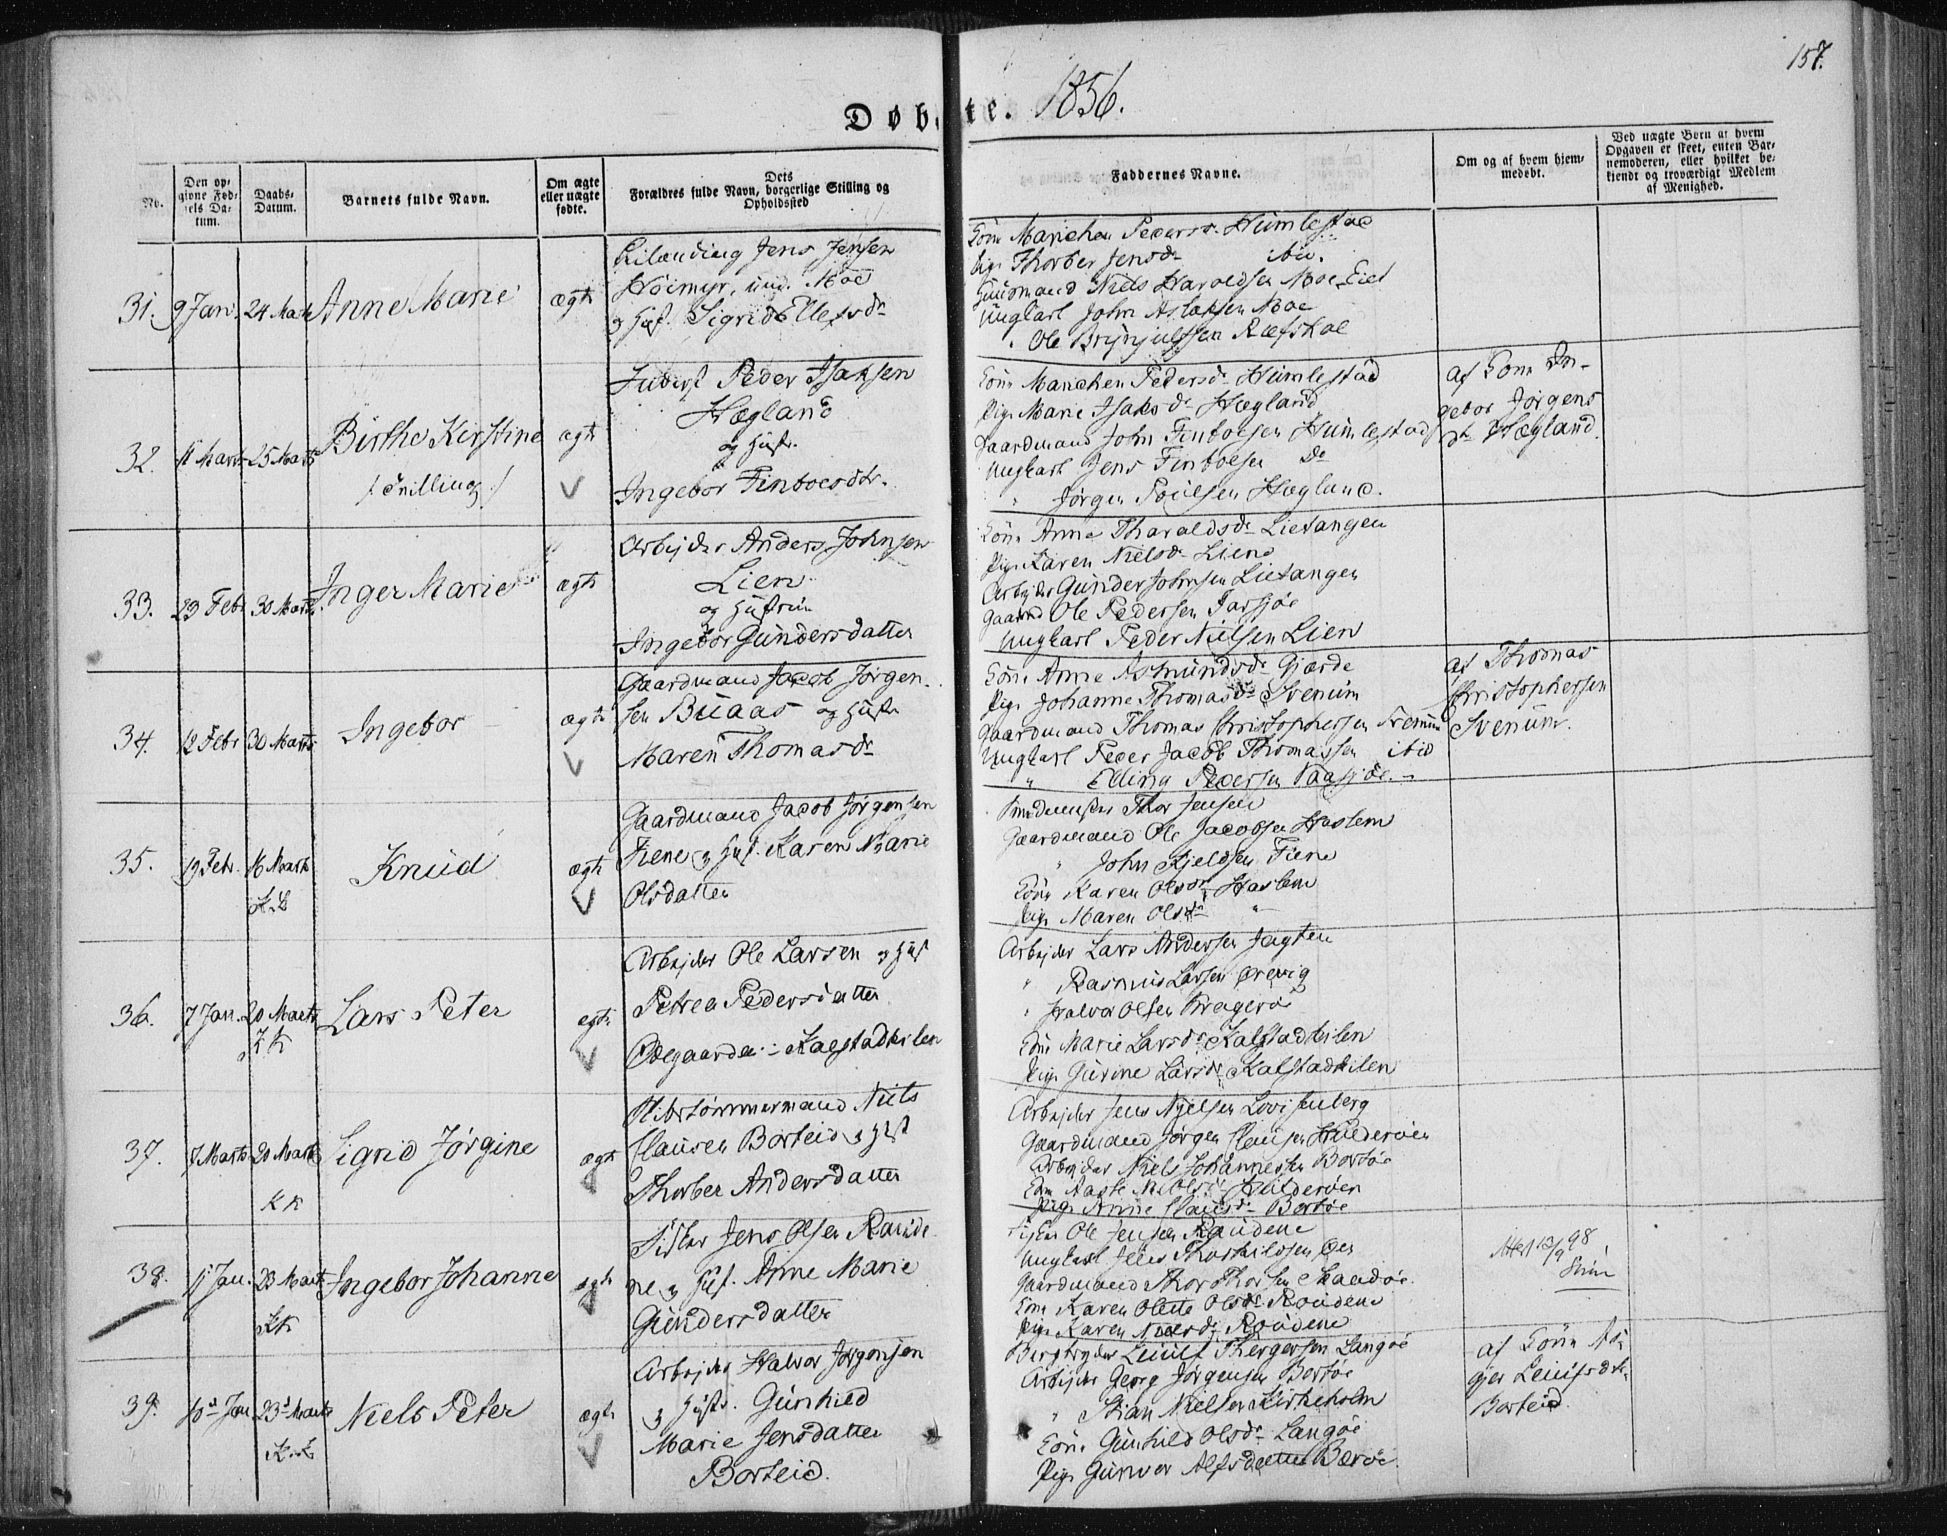 157.
Døbte. 1856.
No.
Den opgivne Fødsels Datum.
Daabs-Datum.
Barnets fulde Navn.
Om ægte eller uægte fødte.
Dets Forældres fulde Navn, borgerlige Stilling og Opholdssted
Faddernes Navne.
Om og af hvem hjemmedøbt.
Ved uægte Børn af hvem Opgaven er skeet, enten Barnemoderen, eller hvilket bekjendt og troværdigt Medlem af Menighed.
31. 9 Jan. 24 Marts Anne Marie ægte
Jens Jensen
Høimyr, und. Moe
og Hust. Sigrid Ellefsdr
Kone Marichen Pedersd. Humlestad
Pige Thorber Jensdr ibid.
Huusmand Niels Haraldsen Moe Eiet
Ungkarl John Aslaksen Moe
" Ole Brynjulfsen Refskoe
32. 11 Marts 25 Marts Birthe Kirstine ægte
/: Trilling :/
Inderst Peder Isaksen
Hægland
og Hustr.
Ingebor Finboesdtr.
Kone Marichen Pedersdr Humlestad
Pige Marie Isaksdr Hægland
Gaardmand John Finboesen Humlestad
Ungkarl Jens Finboesen Do
" Jørgen Poulsen Hægland.
af Kone In-
gebor Jørgens
dr Hægland.
33. 23 Febr 30 Marts Inger Marie ægte
Arbejder Anders Johnsen
Lien
og Hustrue
Ingebor Gundersdatter
Kone Anne Tharaldsdr Lietangen
Pige Karen Nielsdr Liene
Arbejder Gunder Johnsen Lietangen
Gaardmd Ole Pedersen Farsjøe
Ungkarl Peder Nielsen Lien
34. 12 Febr 30 Marts Ingebor ægte
Gaardmand Jacob Jørgen-
sen Buaas og Hustr
Maren Thomasdr
Kone Anne Asmundsdr Gjærde
Pige Johanne Thomasdr Svenum
Gaardmand Thomas Christophersen Svenum
Ungkarl Peder Jacob Thomassen ibid
" Elling Pedersen Vaasjøe.
af Thomas
Christophersen
Svenum.
35. 19 Febr. 16 Marts Knud ægte
Gaardmand Jacob Jørgensen
Fiene og Hust. Karen Marie
Olsdatter
Thor Jensen
Gaardmand Ole Jacobsen Haslem
" John Kjeldsen Fiene
Kone Karen Olsdr Haslem
Pige Maren Olsdr "
36. 7 Jan. 20 Marts Lars Peter ægte
KK
Arbejder Ole Larsen og Hust
Petrea Pedersdatter
Odegaarden Kalstadkilen
Arbejder Lars Andersen Jagten
" Rasmus Larsen Ørevig
" Halvor Olsen Kragerøe
Kone Marie Larsdr Kalstadkilen
Pige Gurine Larsdr Kalstadkilen
37. 7 Marts 20 Marts Sigrid Jørgine ægte
KK
Skibstømmermand Niels
Clausen Borteid og Hust
Thorber Andersdatter
Arbejder Jens Nielsen Lovisenberg
Gaardmand Jørgen Clausen Hulderøen
Arbejder Niels Johannesen Bortøe
Kone Aaste Nielsdr Hulderøen
Pige Anne Clausdr Bortøe
38. 11 Jan. 23 Marts Ingebor Johanne ægte
KK
Fisker Jens Olsen Raude
ne og Hust. Anne Marie
Gundersdatter
Fisker Ole Jensen Raudene
Ungkarl Jens Thorkildsen Øen
Gaardmand Thor Thorsen Skaadøe.
Kone Karen Olette Olsdr Roudene
Pige Karen Nielsdr Roudene
Attest 13/9 98
39. 10de Jan 23de Marts Niels Peter ægte
K.K.
Arbejder Halvor Jørgensen
og Hustr. Gunhild
Marie Jensdatter
Borteid.
Bergbryder Leiulf Thergersen Langøe
Arbejder Georg Jørgensen Bortøe
" Stian Nielsen Kirkeholm
Kone Gunhild Olsdr Langøe
Pige Gunvor Alfsdatter Bærøe
af Kone As-
gjer Leiulfsdtr.
Borteid.